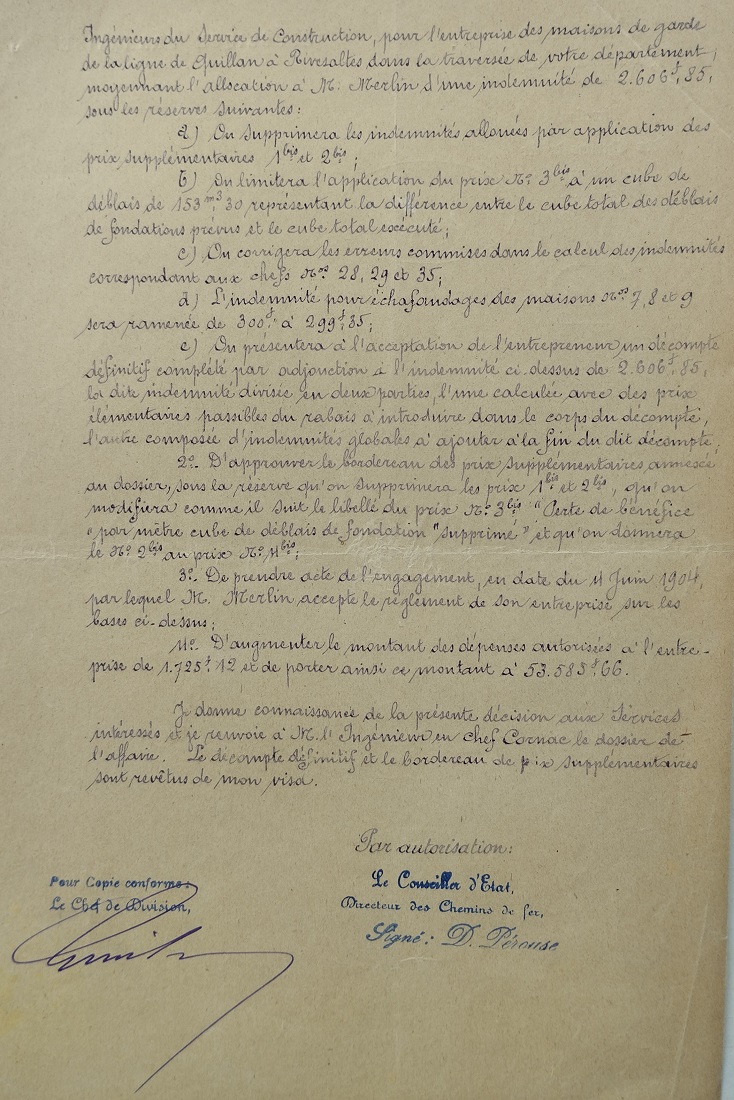 Ingénieurs du Service de Construction, pour l'entreprise des maisons de garde
de la ligne de Quillan à Rivesaltes dans la traversée de votre département,
moyennant l'allocation à M. Merlin d'une indemnité de 2.606f,85,
sous les réserves suivantes :
a) On supprimera les indemnités allouées par application des
prix supplémentaires 1bis et 2bis ;
b) On limitera l'application du prix No 3bis à un cube de
déblais de 153m3,30 représentant la différence entre le cube total des déblais
de fondations prévus et le cube total exécuté ;
c) On corrigera les erreurs commises dans le calcul des indemnités
correspondant aux chefs Nos 28, 29 et 35 ;
d) L'indemnité pour échafaudages des maisons Nos 7, 8 et 9
sera ramenée de 300f à 299f,35 ;
e) On présentera à l'acceptation de l'entrepreneur un décompte
définitif complété par adjonction à l'indemnité ci-dessus de 2.606f,85,
la dite indemnité divisée en deux parties, l'une calculée avec des prix
élémentaires passibles du rabais à introduire dans le corps du décompte,
l'autre composée d'indemnités globales à ajouter à la fin du dit décompte ;
2o- D'approuver le bordereau des prix supplémentaires annexé
au dossier, sous la réserve qu'on supprimera les prix 1bis et 2bis, qu'on
modifiera comme il suit le libellé du prix No 3bis "Perte de bénéfice
"par mètre cube de déblais de fondation "supprimé" et qu'on donnera
le No 2bis au prix No 4bis ;
3o- De prendre acte de l'engagement, en date du 4 Juin 1904,
par lequel M. Merlin accepte le règlement de son entreprise sur les
bases ci-dessus ;
4o- D'augmenter le montant des dépenses autorisées à l'entre-
prise de 1.725f,12 et de porter ainsi ce montant à 53.585f,66.
Je donne connaissance de la présente décision aux Services
intéressés et je renvoie à M. l'Ingénieur en chef Cornac le dossier de
l'affaire. Le décompte définitif et le bordereau de prix supplémentaires
sont revêtus de mon visa.
Par autorisation :
Pour Copie conforme :
Le Chef de Division,
Le Conseiller d'Etat,
Directeur des Chemins de fer,
Signé : D. Pérouse